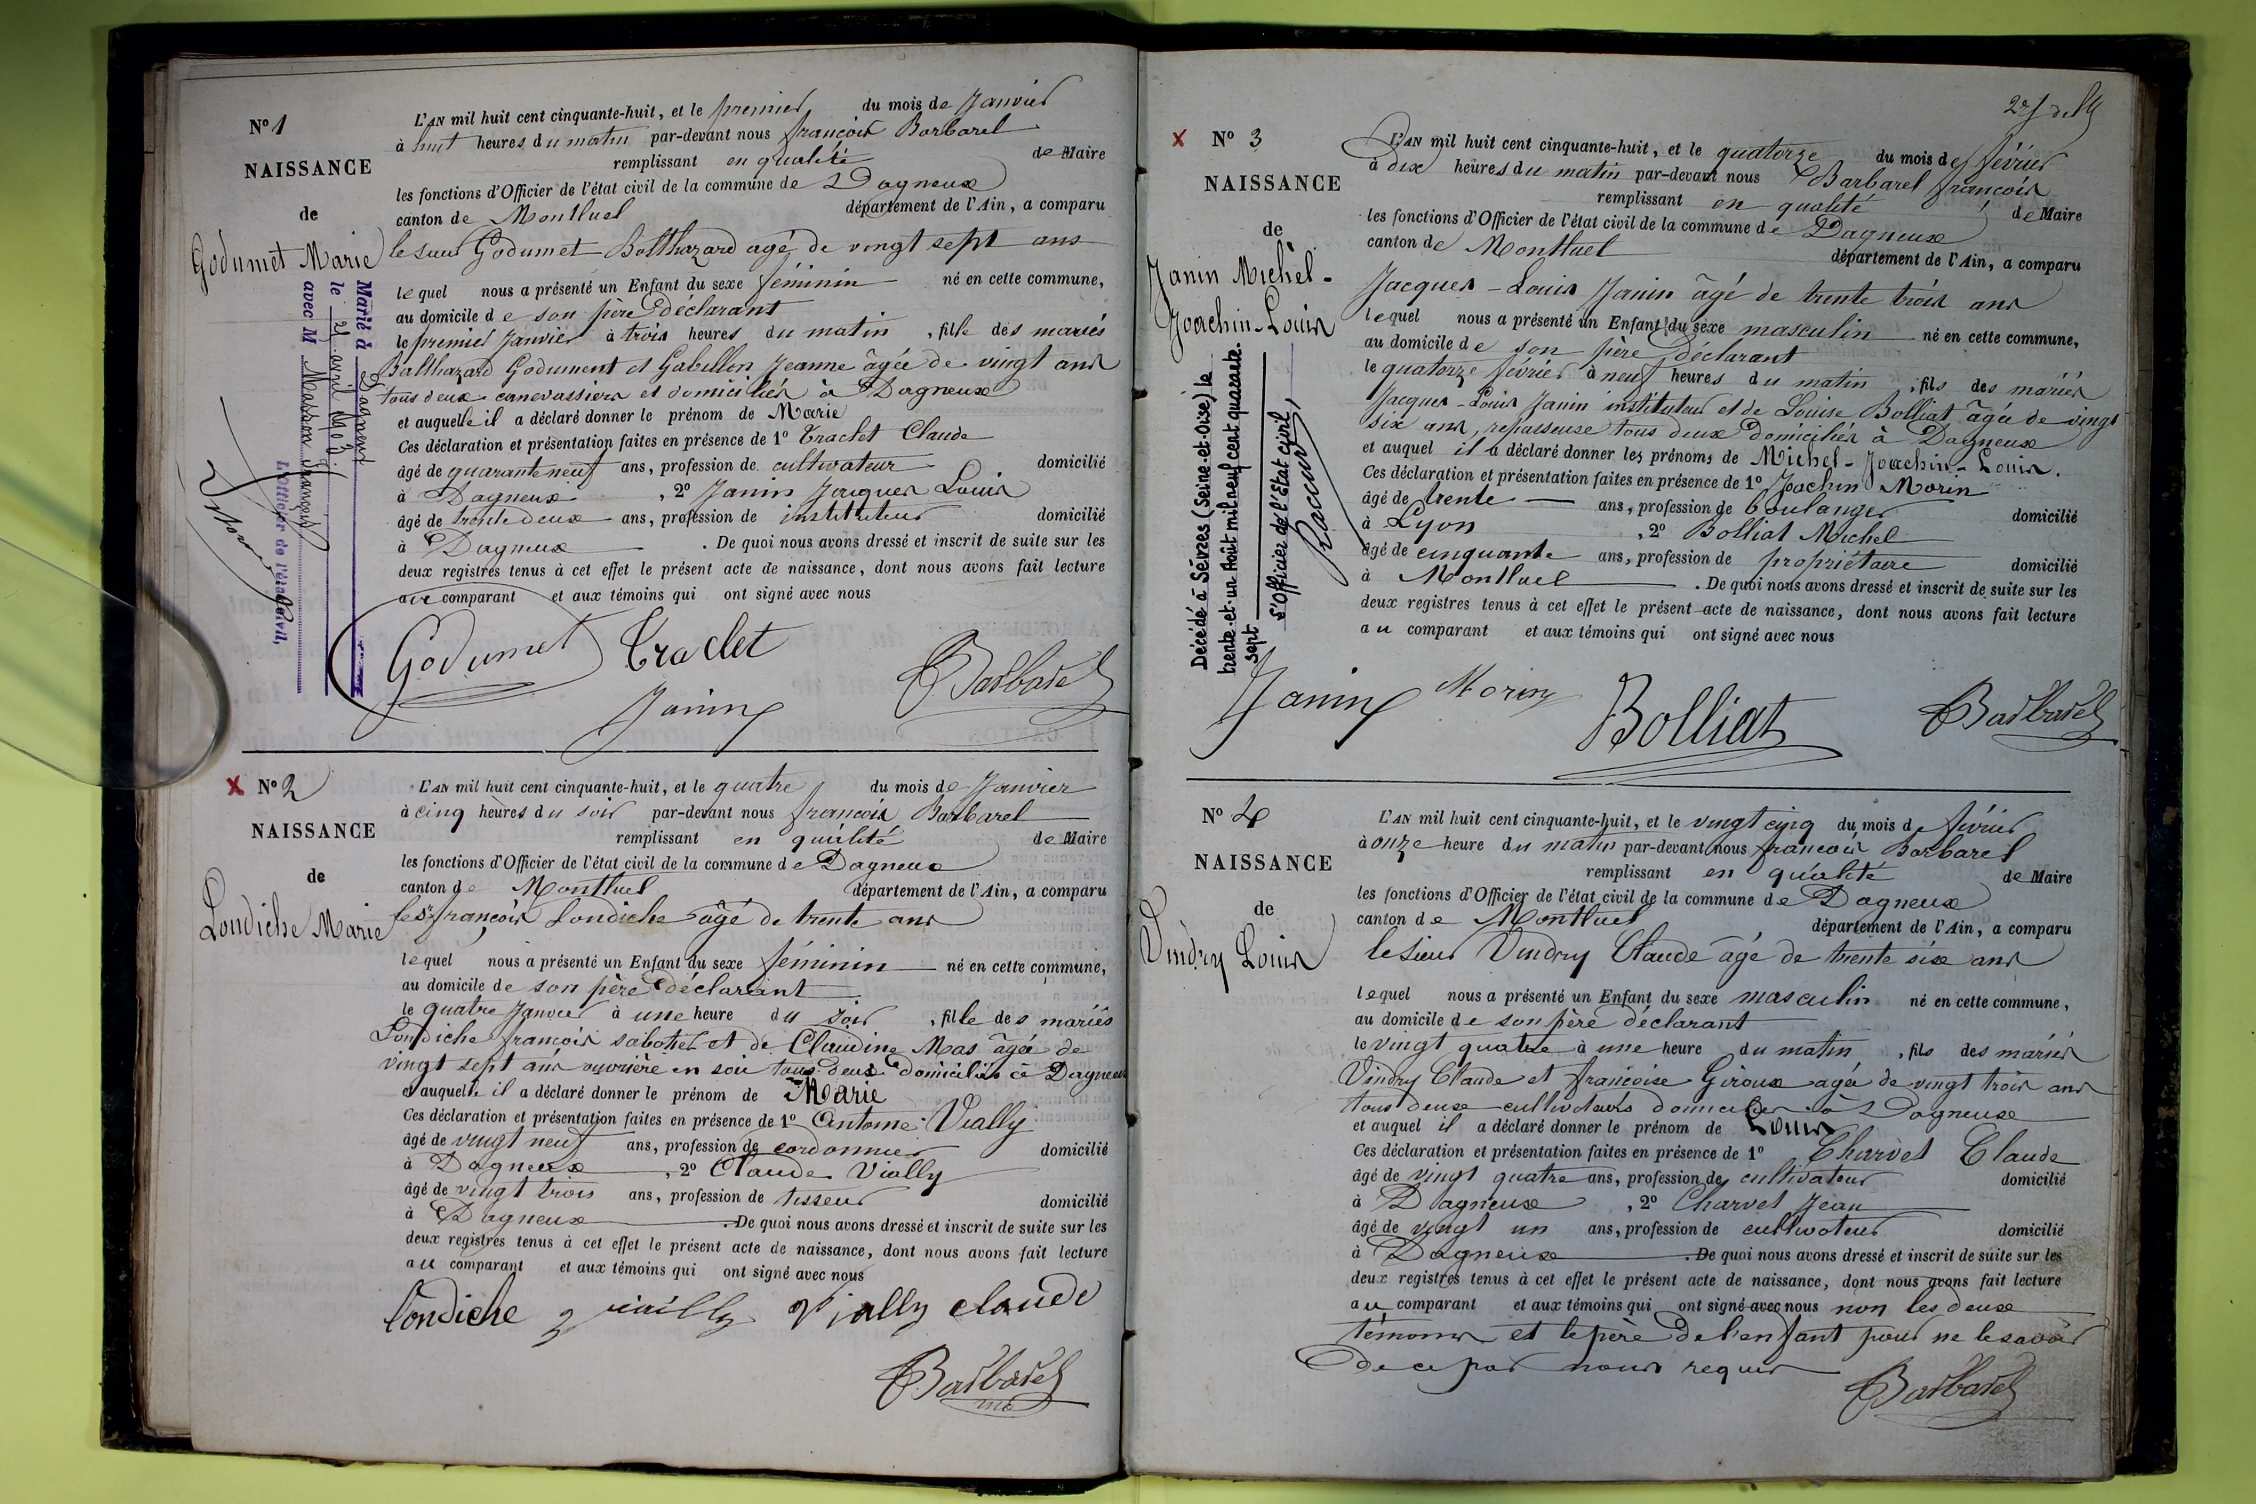 N° 1
NAISSANCE
de
Godumet Marie
L'AN mil huit cent cinquante-huit, et le premier du mois de Janvier
à huit heures du matin par-devant nous françois Barbarel
remplissant en qualité de Maire
les fonctions d'Officier de l'état civil de la commune de Dagneux
canton de Montluel département de l'Ain, a comparu
le sieur Godumet Balthazard agé de vingt sept ans
lequel nous a présenté un Enfant du sexe féminin né en cette commune,
au domicile de son père déclarant
le premier Janvier à trois heures du matin, fille des mariés
Balthazard Godument et Gabillon Jeanne âgée de vingt ans
tous deux canevassiers et domiciliés à Dagneux
et auquelle il a déclaré donner le prénom de Marie
Ces déclaration et présentation faites en présence de 1° Traclet Claude
âgé de quarante neuf ans, profession de cultivateur domicilié
à Dagneux, 2° Janin Jacques Louis
âgé de trente deux ans, profession de instituteur domicilié
à Dagneux. De quoi nous avons dressé et inscrit de suite sur les
deux registres tenus à cet effet le présent acte de naissance, dont nous avons fait lecture
au comparant et aux témoins qui ont signé avec nous
Godumet Traclet
Janin Barbarel
Marié à Dagneux
le 21 avril 1903
avec M
L'Officier de l'état civil,
X N° 2
NAISSANCE
de
Londiche Marie
L'AN mil huit cent cinquante-huit, et le quatre du mois de Janvier
à cinq heures du soir par-devant nous françois Barbarel
remplissant en quálité de Maire
les fonctions d'Officier de l'état civil de la commune de Dagneux
canton de Montluel département de l'Ain, a comparu
le Sr françois Londiche âgé de trente ans
lequel nous a présenté un Enfant du sexe féminin né en cette commune,
au domicile de son père déclarant
le quatre Janvier à une heure du soir, fille des mariés
Londiche françois sabotier et de Claudine Mas âgée de
vingt sept ans ouvrière en soie tous deux domiciliés à Dagneux
et auquelle il a déclaré donner le prénom de Marie
Ces déclaration et présentation faites en présence de 1° Antoine Vially
âgé de vingt neuf ans, profession de cordonnier domicilié
à Dagneux, 2° Claude Vially
âgé de vingt trois ans, profession de tisseur domicilié
à Dagneux. De quoi nous avons dressé et inscrit de suite sur les
deux registres tenus à cet effet le présent acte de naissance, dont nous avons fait lecture
au comparant et aux témoins qui ont signé avec nous
Londiche Vially Vially claude
Barbarel
X N° 3
NAISSANCE
de
Janin Michel-
Joachin-Louis
L'AN mil huit cent cinquante-huit, et le quatorze du mois de février
à dix heures du matin par-devant nous Barbarel françois
remplissant en qualité de Maire
les fonctions d'Officier de l'état civil de la commune de Dagneux
canton de Montluel département de l'Ain, a comparu
Jacques-Louis Janin âgé de trente trois ans
lequel nous a présenté un Enfant du sexe masculin né en cette commune,
au domicile de son père déclarant
le quatorze février à neuf heures du matin, fils des mariés
Jacques-Louis Janin instituteur et de Louise Bolliat âgée de vingt
six ans, repasseuse tous deux domiciliés à Dagneux
et auquel il a déclaré donner les prénoms de Michel-Joachin-Louis.
Ces déclaration et présentation faites en présence de 1° Joachin Morin
âgé de trente ans, profession de boulanger domicilié
à Lyon, 2° Bolliat Michel
âgé de cinquante ans, profession de propriétaire domicilié
à Montluel. De quoi nous avons dressé et inscrit de suite sur les
deux registres tenus à cet effet le présent acte de naissance, dont nous avons fait lecture
au comparant et aux témoins qui ont signé avec nous
Janin Morin Bolliat Barbarel
Décédé à Sèvres (Seine-et-Oise) le
trente-et-un Août mil neuf cent quarante.
sept
L'Officier de l'État civil,
N° 4
NAISSANCE
de
Vindry Louis
L'AN mil huit cent cinquante-huit, et le vingt cinq du mois de février
à onze heure du matin par-devant nous françois Barbarel
remplissant en quálité de Maire
les fonctions d'Officier de l'état civil de la commune de Dagneux
canton de Montluel département de l'Ain, a comparu
le sieur Vindry Claude âgé de trente six ans
lequel nous a présenté un Enfant du sexe masculin né en cette commune,
au domicile de son père déclarant
le vingt quatre à une heure du matin, fils des mariés
Vindry Claude et françoise Giroux agée de vingt trois ans
tous deux cultivateurs domiciliés à Dagneux
et auquel il a déclaré donner le prénom de Louis
Ces déclaration et présentation faites en présence de 1° Charvet Claude
âgé de vingt quatre ans, profession de cultivateur domicilié
à Dagneux, 2° Charvet Jean
âgé de vingt un ans, profession de cultivateur domicilié
à Dagneux. De quoi nous avons dressé et inscrit de suite sur les
deux registres tenus à cet effet le présent acte de naissance, dont nous avons fait lecture
au comparant et aux témoins qui ont signé avec nous non les deux
témoins et le père de l'enfant pour ne le savoir
de ce par nous requis
Barbarel